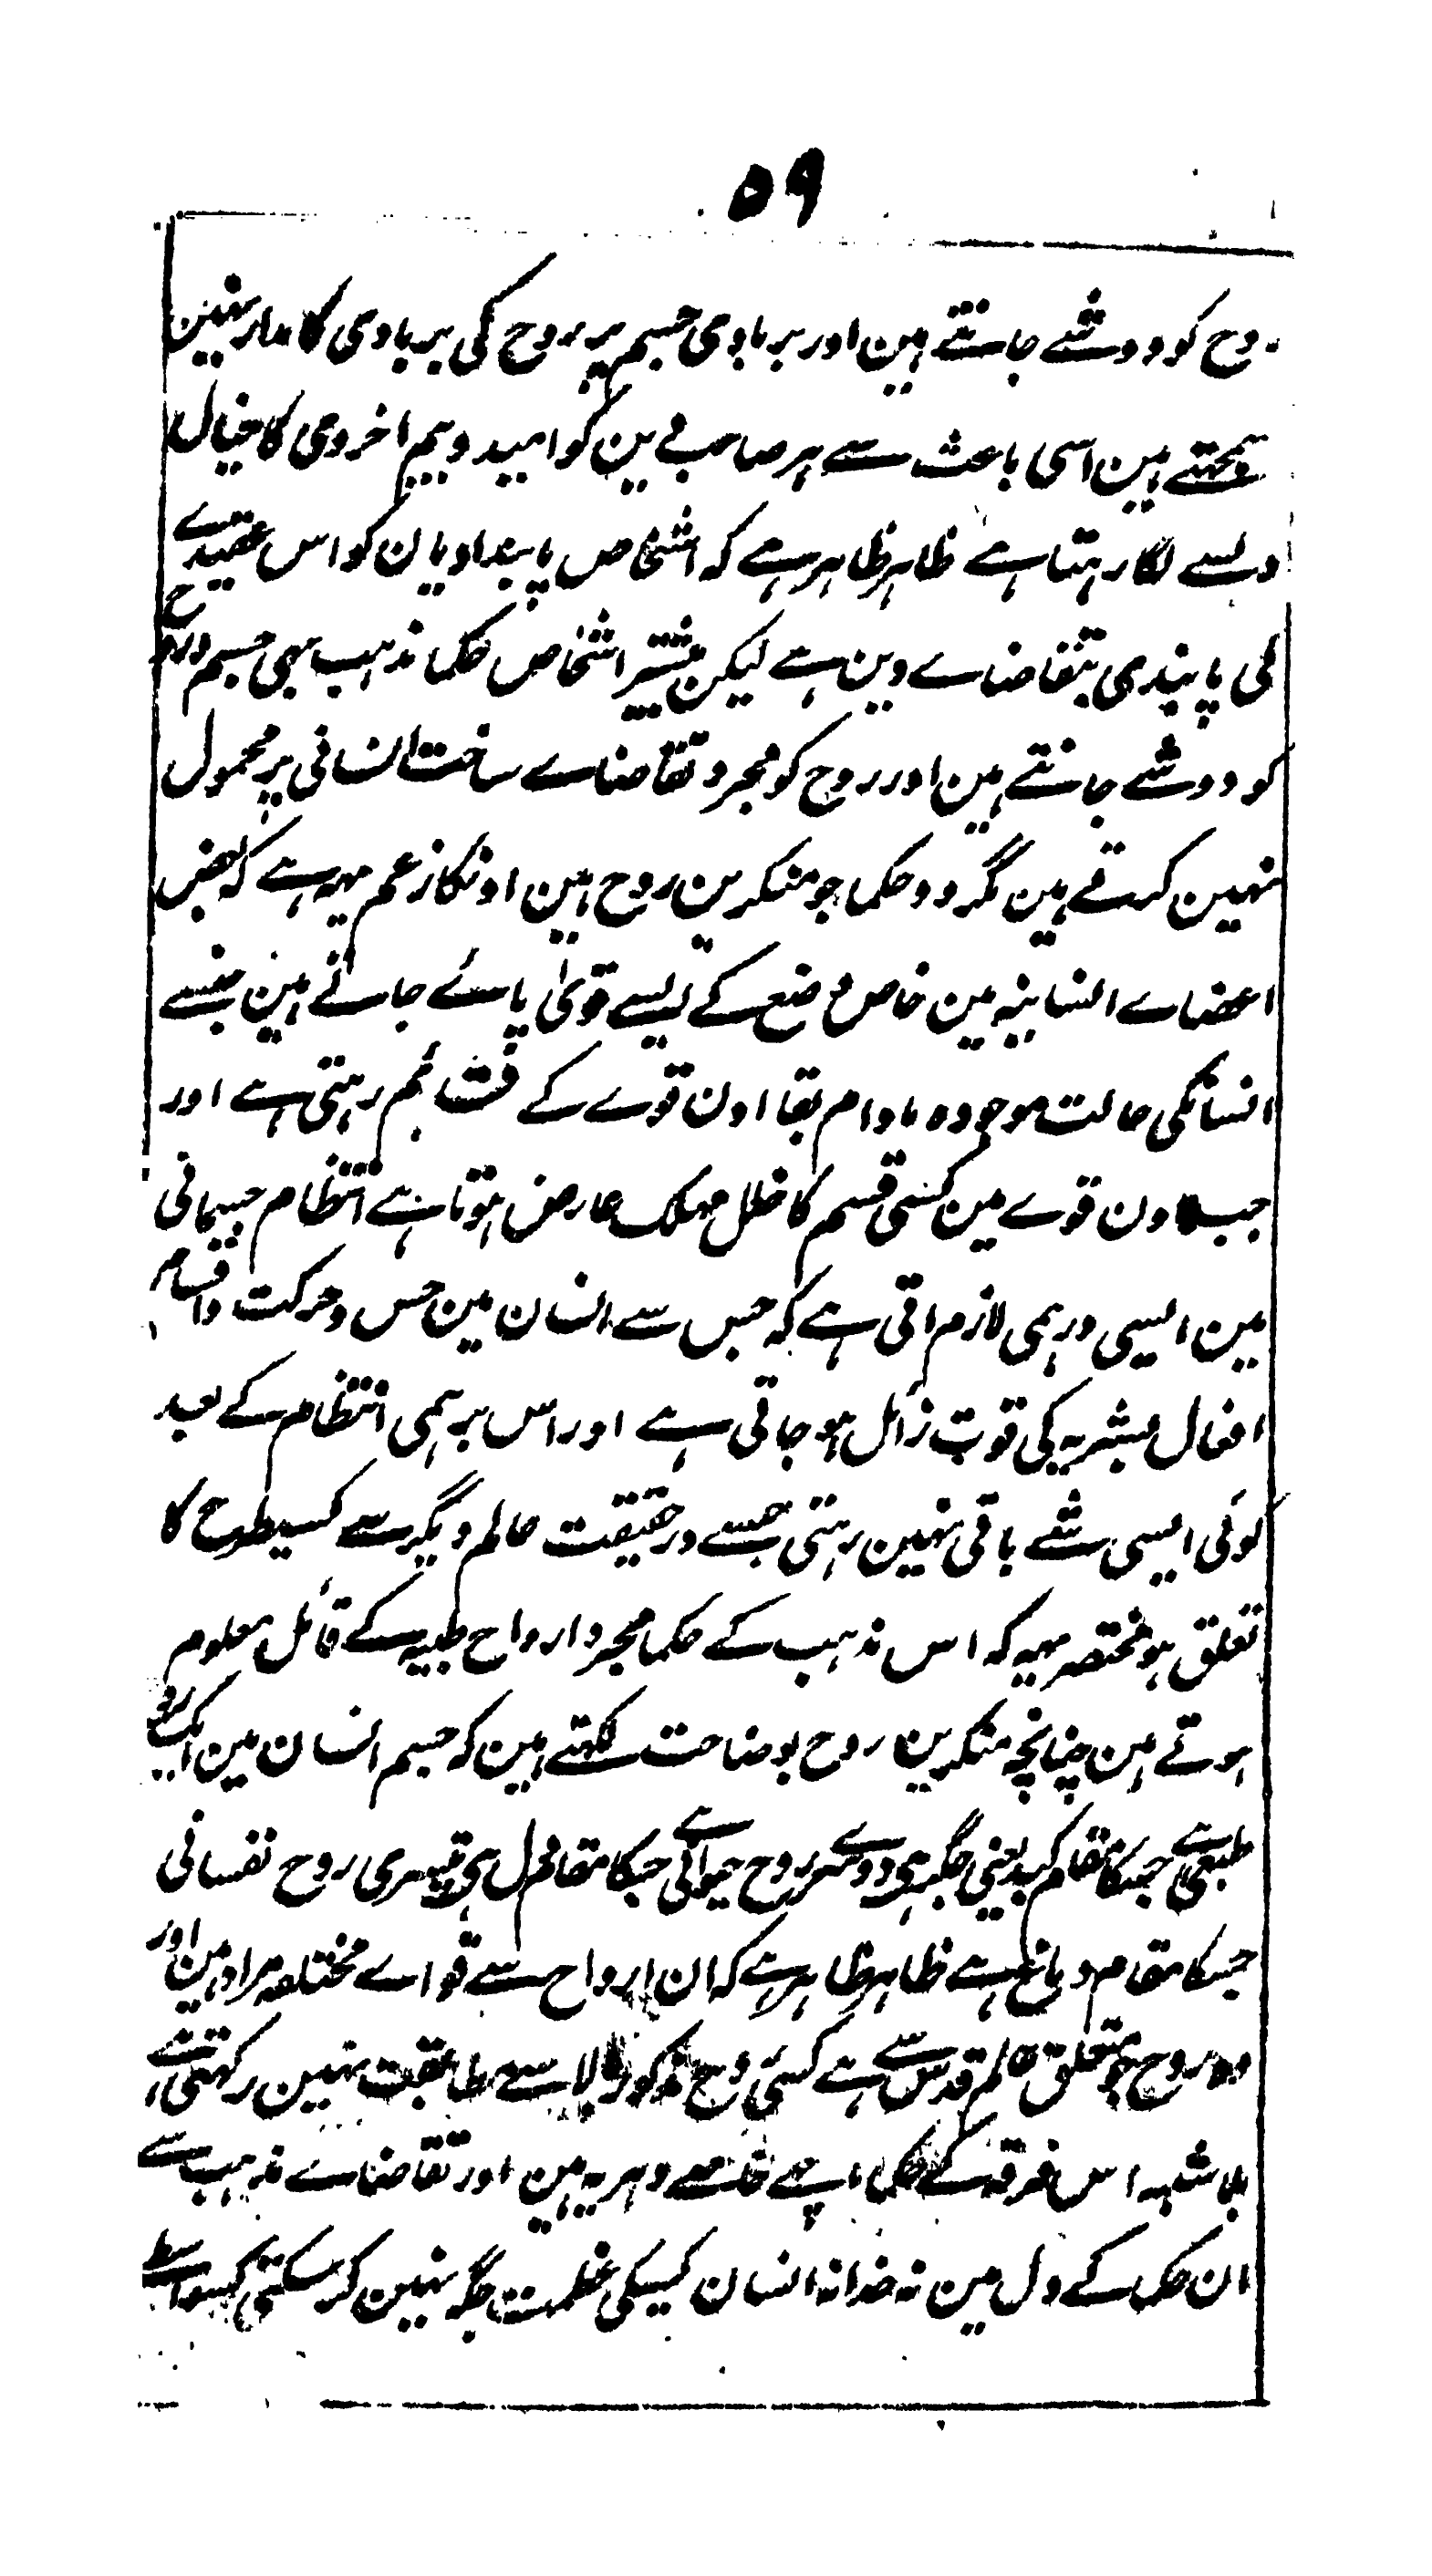 ۵۹
روح کو دو شے جانتے ہین اور بربادی جسم پر روح کی بربادی کا مدار نہین
سمجھتے ہین اسی باعث سے ہر صاحب دین کو امید و بیم اخروی کا خیال
دلسے لگا رہتا ہے ظاہر ظاہر ہے کہ اشخاص پابند ادیان کو اس عقیدے
کی پابندی بتقاضاے دین ہے لیکن بیشتر اشخاص حکما مذہب بھی جسم و روح
کو دو شے جانتے ہین اور روح کو مجرد تقاضاے ساخت انسانی پر محمول
نہین کرتے ہین مگر وہ حکما جو منکرین روح ہین اونکا زعم یہہ ہے کہ بعض
اعضاے انسانیہ مین خاص وضع کے ایسے قویٰ پائے جاتے ہین جنسے
انسانکی حالت موجودہ مادام بقا اون قوے کے قائم رہتی ہے اور
جب اون قوے مین کسی قسم کا خلل مہلک عارض ہوتا ہے انتظام جسمانی
مین ایسی درہمی لازم اتی ہے کہ جس سے انسان مین حس و حرکت و اقسام
افعال بشریہ کی قوت زائل ہو جاتی ہے اور اس برہمی انتظام کے بعد
کوئی ایسی شے باقی نہین رہتی جسے درحقیقت عالم دیگر سے کسیطرح کا
تعلق ہو مختصر یہہ کہ اس مذہب کے حکما مجرد ارواح طبیہ کے قائل معلوم
ہوتے ہین چنانچہ منکرین روح بوضاحت لکھتے ہین کہ جسم انسان مین ایک روح
طبعی ہے جسکا مقام کبد یعنی جگر ہی دوسرے روح حیوانی ہے جسکا مقام دل ہی تیسری روح نفسانی
جسکا مقام دماغ ہے ظاہر ظاہر ہے کہ ان ارواح سے قواے مختلفہ مراد ہین اور
وہ روح جو متعلق عالم قدس سے ہے کسی روح مذکور بالا سے مطابقت نہین رکھتی ہے
بلا شبہہ اس فرقہ کے حکما اچھے خاصے دہریہ ہین اور تقاضاے مذہب سے
ان حکما کے دل مین نہ خدا نہ انسان کسیکی عظمت جگہ نہین کر سکتی کسواسطے